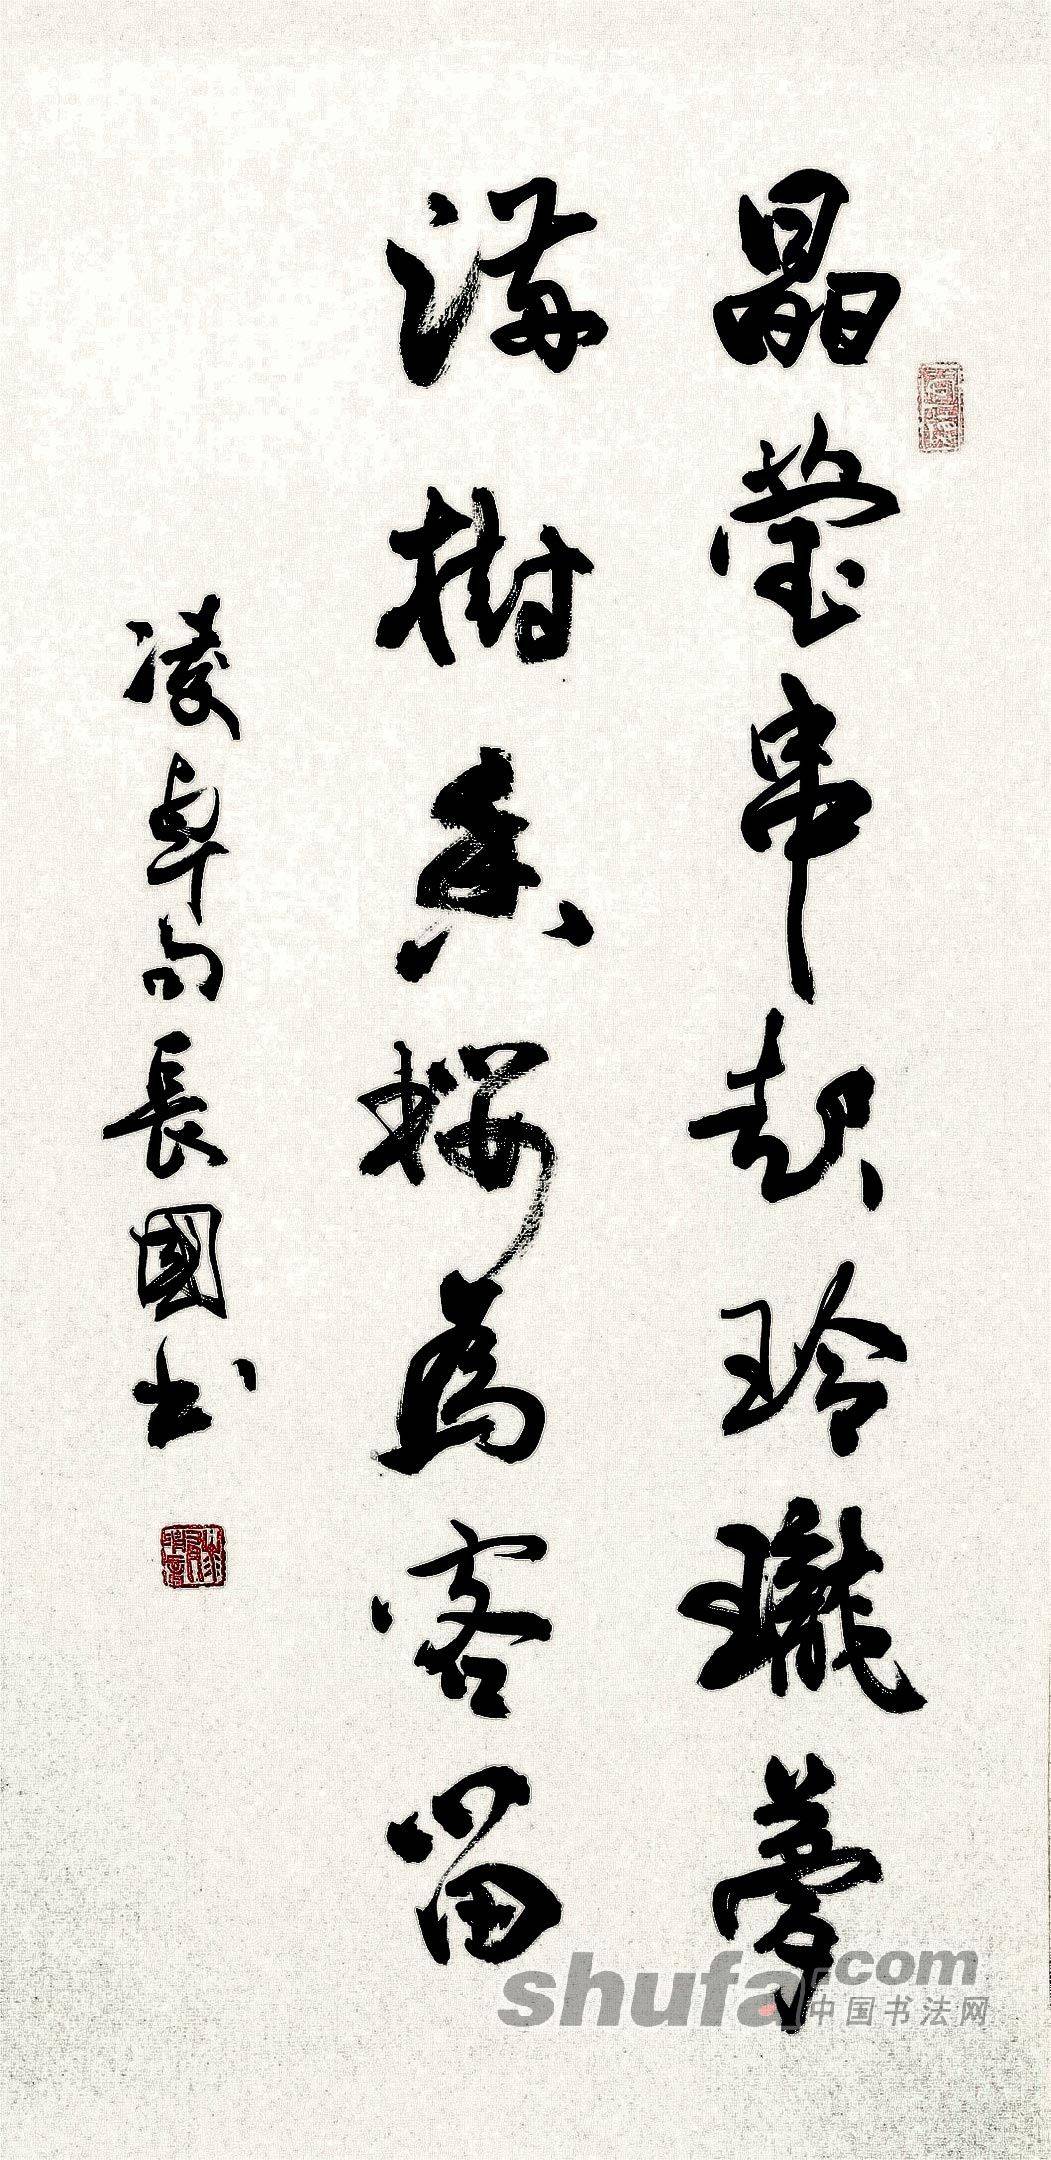 晶瑩串起玲瓏夢
滿樹香櫻為客留
凌卓向長國書
shufa.com
中国书法网